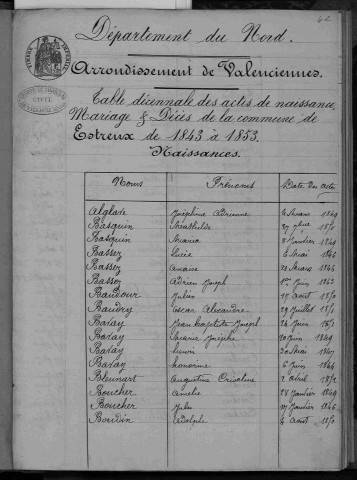 42
Département du Nord.
Arrondissement de Valenciennes.
Table décennale des actes de naissance,
Mariage & Décès de la commune de
Estreux de 1843 à 1853.
Naissances.
Noms Prénoms Date des actes
Alglave Joséphine Adrienne 4 1849
Basquin Mathilde 27 1851
Basquin Maria 8 Janvier 1849
Bassez Lucie 6 Mai 1846
Bassez 22 Mars 1846
Bassez Adrien Joseph 1er Juin 1843
Baudour Jules 17 août 1850
Baudry Oscar Alexandre 29 Juillet 1850
Bavay Jean Baptiste Joseph 24 Juin 1851
Bavay Marie Josèphe 20 Juin 1849
Bavay 30 Mai 1847
Bavay honorine 6 Juin 1844
Blennart Augustine 2 avril 1852
Boucher Amélie 28 Janvier 1849
Boucher Jules 17 Janvier 1846
Boudin Adolphe 4 août 1850